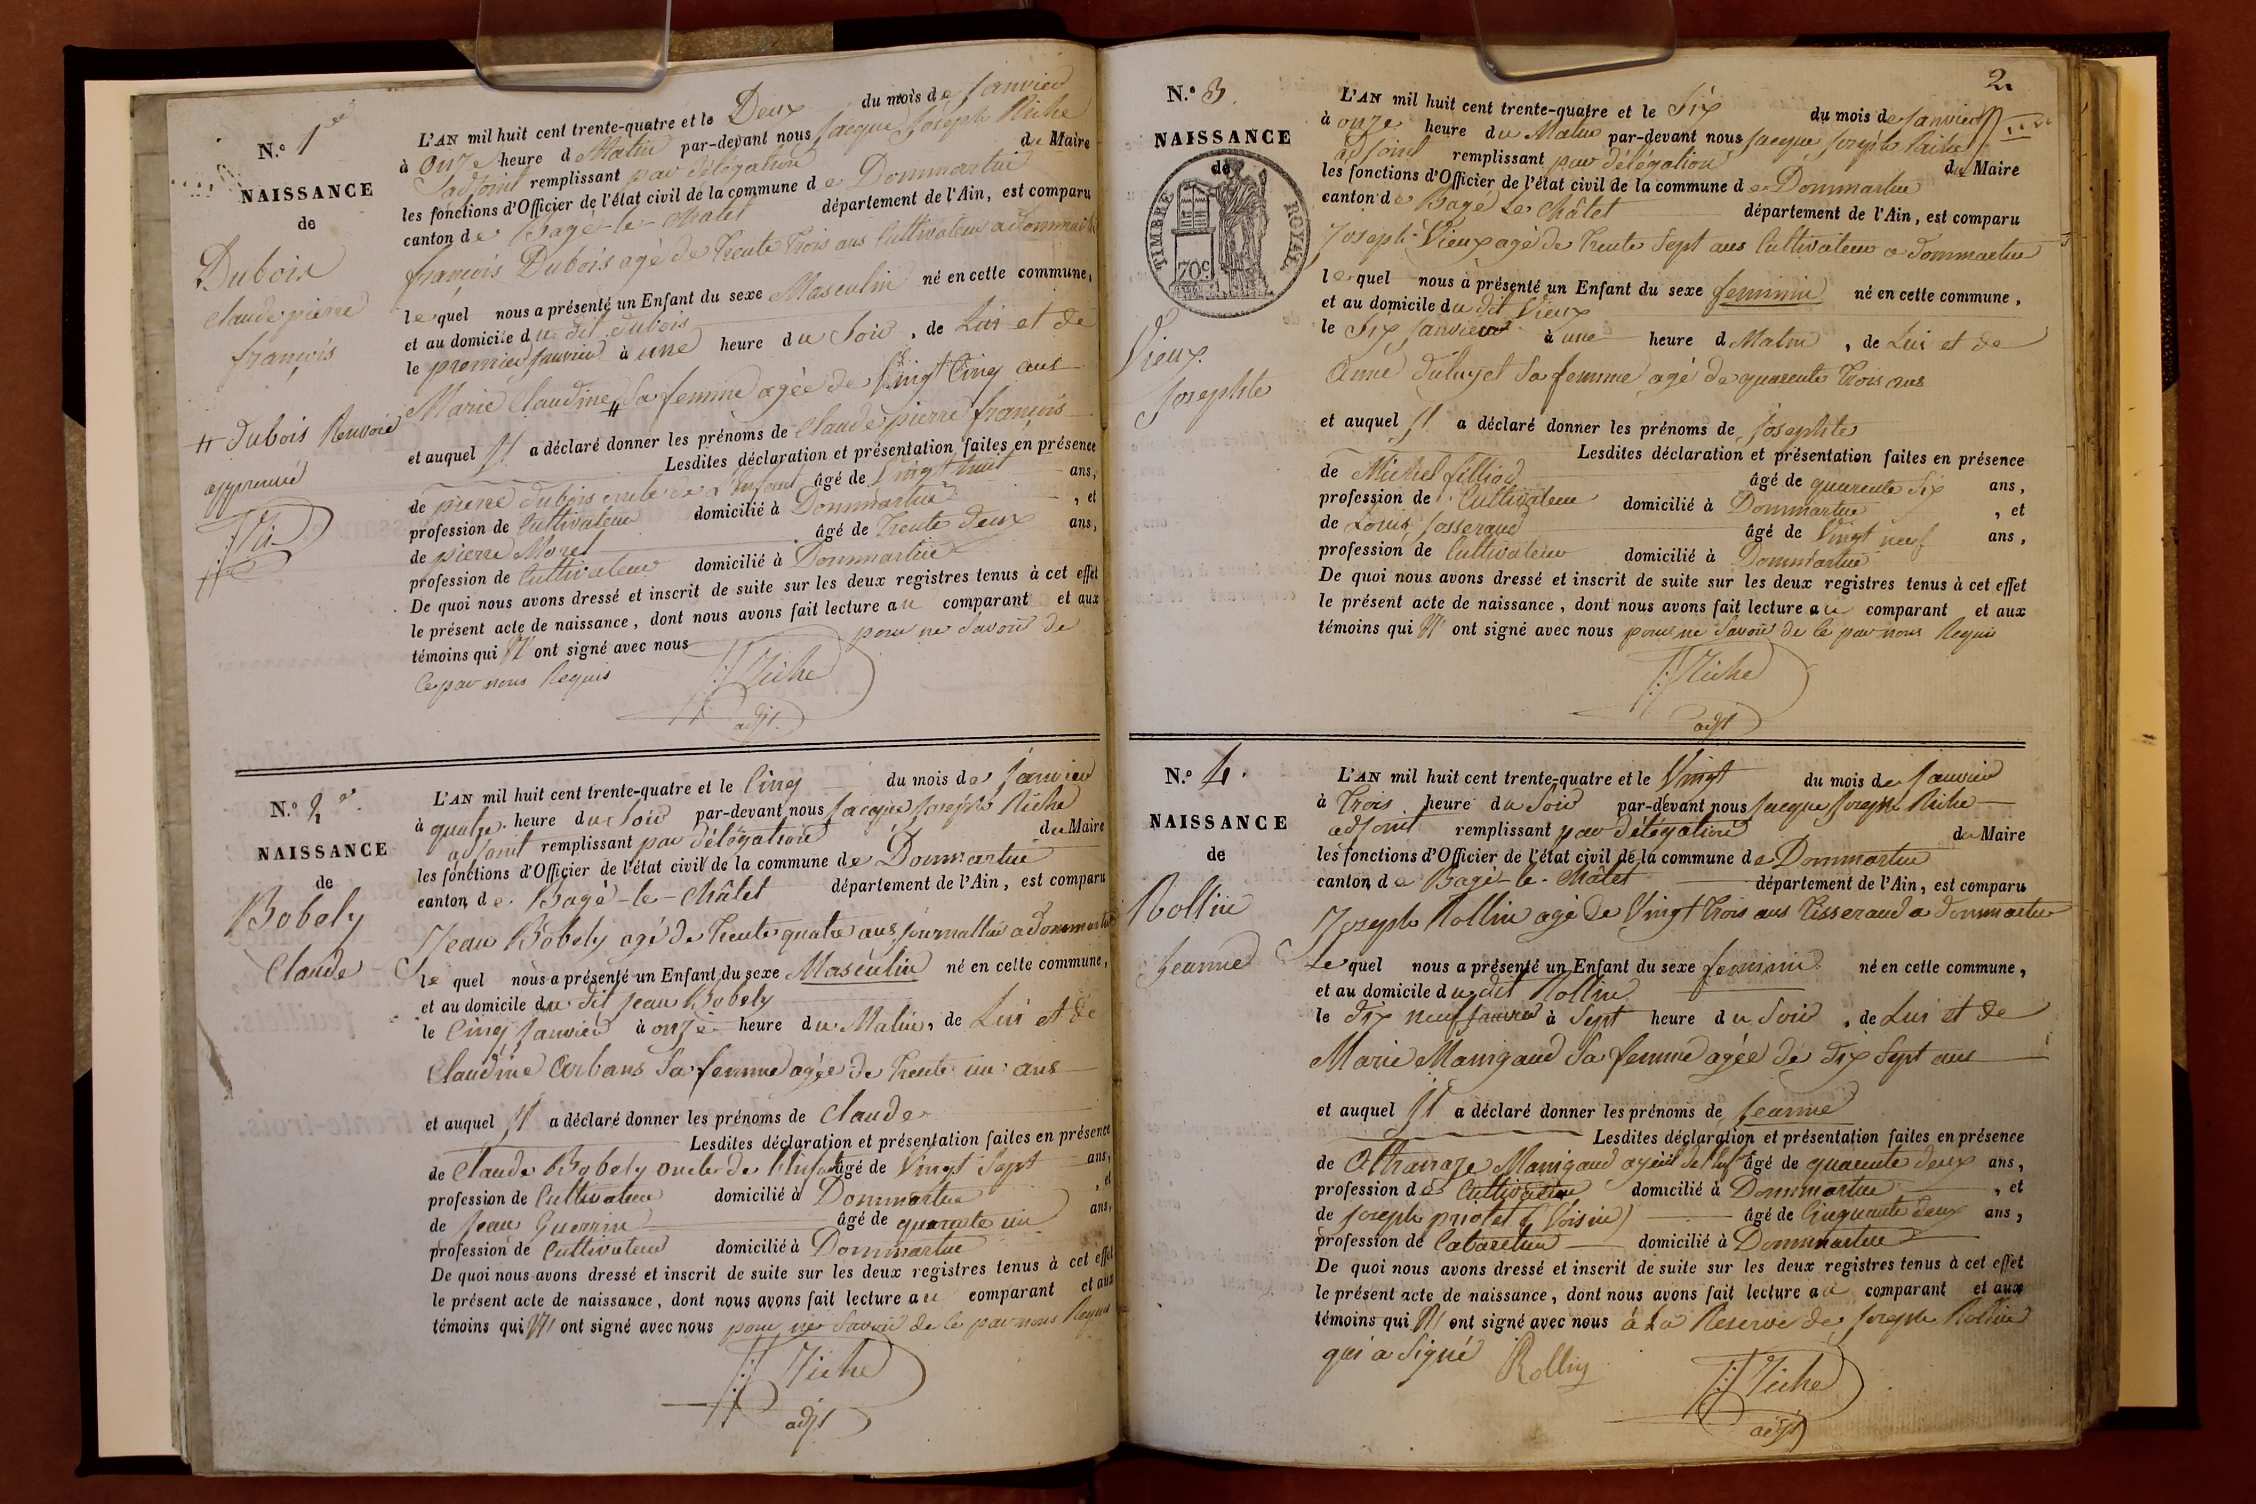 N.º 1er
NAISSANCE
de
Dubois
claude pierre
françois
# Dubois Renvoie
approuvé
L'AN mil huit cent trente-quatre et le Deux du mois de Janvier
à onze heure d Matin par-devant nous Jacque Joseph Riche
L'adjoint remplissant par délégation du Maire
les fonctions d'Officier de l'état civil de la commune de Dommartin
canton de Bagé-le-Chatel département de l'Ain, est comparu
françois Dubois agé de trente trois ans Cultivateur a Dommartin
lequel nous a présenté un Enfant du sexe Masculin né en cette commune,
et au domicile du dit dubois
le premier janvier à une heure du Soir, de Lui et de
Marie Claudine # Sa femme agée de Vingt Cinq ans
et auquel Il a déclaré donner les prénoms de Claude pierre françois
Lesdites déclaration et présentation faites en présence
de pierre dubois oncle de L'Enfant âgé de Vingt huit ans,
profession de Cultivateur domicilié à Dommartin, et
de pierre Morel âgé de trente deux ans,
profession de Cultivateur domicilié à Dommartin
De quoi nous avons dressé et inscrit de suite sur les deux registres tenus à cet effet
le présent acte de naissance, dont nous avons fait lecture au comparant et aux
témoins qui N' ont signé avec nous pour ne Savoir de
Ce par nous Requis
JJ Riche
adjt
N.º 2e.
NAISSANCE
de
Bobely
Claude
L'AN mil huit cent trente-quatre et le Cinq du mois de Janvier
à quatre heure du Soir par-devant nous Jacque Joseph Riche
adjoint remplissant par délégation du Maire
les fonctions d'Officier de l'état civil de la commune de Dommartin
canton de Bagé-le-Châtel département de l'Ain, est comparu
Jean Bobely agé de trente quatre ans journallier a Dommartin
lequel nous a présenté un Enfant du sexe Masculin né en cette commune,
et au domicile du dit Jean Bobely
le Cinq Janvier à onze heure du Matin, de Lui et de
Claudine Cerbans Sa femme agée de trente un ans
et auquel Il a déclaré donner les prénoms de Claude
Lesdites déclaration et présentation faites en présence
de Claude Bobely oncle de l'Enfant âgé de Vingt Sept ans,
profession de Cultivateur domicilié à Dommartin, et
de Jean Guerrin âgé de quarante un ans,
profession de Cultivateur domicilié à Dommartin
De quoi nous avons dressé et inscrit de suite sur les deux registres tenus à cet effet
le présent acte de naissance, dont nous avons fait lecture au comparant et aux
témoins qui N' ont signé avec nous pour ne Savoir de Ce par nous Requis
JJ Riche
adjt
2
N.º 3.
NAISSANCE
de
TIMBRE ROYAL
70c
Vieux
Josephte
L'AN mil huit cent trente-quatre et le Six du mois de Janvier
à onze heure du Matin par-devant nous Jacque Joseph Riche
adjoint remplissant par délégation du Maire
les fonctions d'Officier de l'état civil de la commune de Dommartin
canton de Bagé Le Châtel département de l'Ain, est comparu
Joseph Vieux agé de trente Sept ans Cultivateur a Dommartin
lequel nous à présenté un Enfant du sexe feminin né en cette commune,
et au domicile du dit Vieux
le Six Janvier à une heure d Matin, de Lui et de
Anne duluyet Sa femme agé de quarente trois ans
et auquel Il a déclaré donner les prénoms de Josephte
Lesdites déclaration et présentation faites en présence
de Michel filliod âgé de quarente Six ans,
profession de Cultivateur domicilié à Dommartin, et
de Louis Josserand âgé de Vingt neuf ans,
profession de Cultivateur domicilié à Dommartin
De quoi nous avons dressé et inscrit de suite sur les deux registres tenus à cet effet
le présent acte de naissance, dont nous avons fait lecture au comparant et aux
témoins qui N' ont signé avec nous pour ne Savoir de Ce par nous Requis
JJ Riche
adjt
N.º 4.
NAISSANCE
de
Rollin
Jeanne
L'AN mil huit cent trente-quatre et le Vingt du mois de Janvier
à Trois heure du Soir par-devant nous Jacque Joseph Riche
adjoint remplissant par délégation du Maire
les fonctions d'Officier de l'état civil de la commune de Dommartin
canton de Bagé-le-Châtel département de l'Ain, est comparu
Joseph Rollin agé de Vingt trois ans tisserand a dommartin
Lequel nous a présenté un Enfant du sexe feminin né en cette commune,
et au domicile du dit Rollin
le Dix neuf Janvier à Sept heure du Soir, de Lui et de
Marie Manigand Sa femme agée de Dix Sept ans
et auquel Il a déclaré donner les prénoms de Jeanne
Lesdites déclaration et présentation faites en présence
de Athanaze Manigand ayeul de l'enf âgé de quarente deux ans,
profession de Cultivateur domicilié à Dommartin, et
de Joseph priolet (Voisin) âgé de Cinquante deux ans,
profession de Cabaretier domicilié à Dommartin
De quoi nous avons dressé et inscrit de suite sur les deux registres tenus à cet effet
le présent acte de naissance, dont nous avons fait lecture au comparant et aux
témoins qui N' ont signé avec nous à La Réserve de Joseph Rollin
qui a Signé Rollin
JJ Riche
adjt